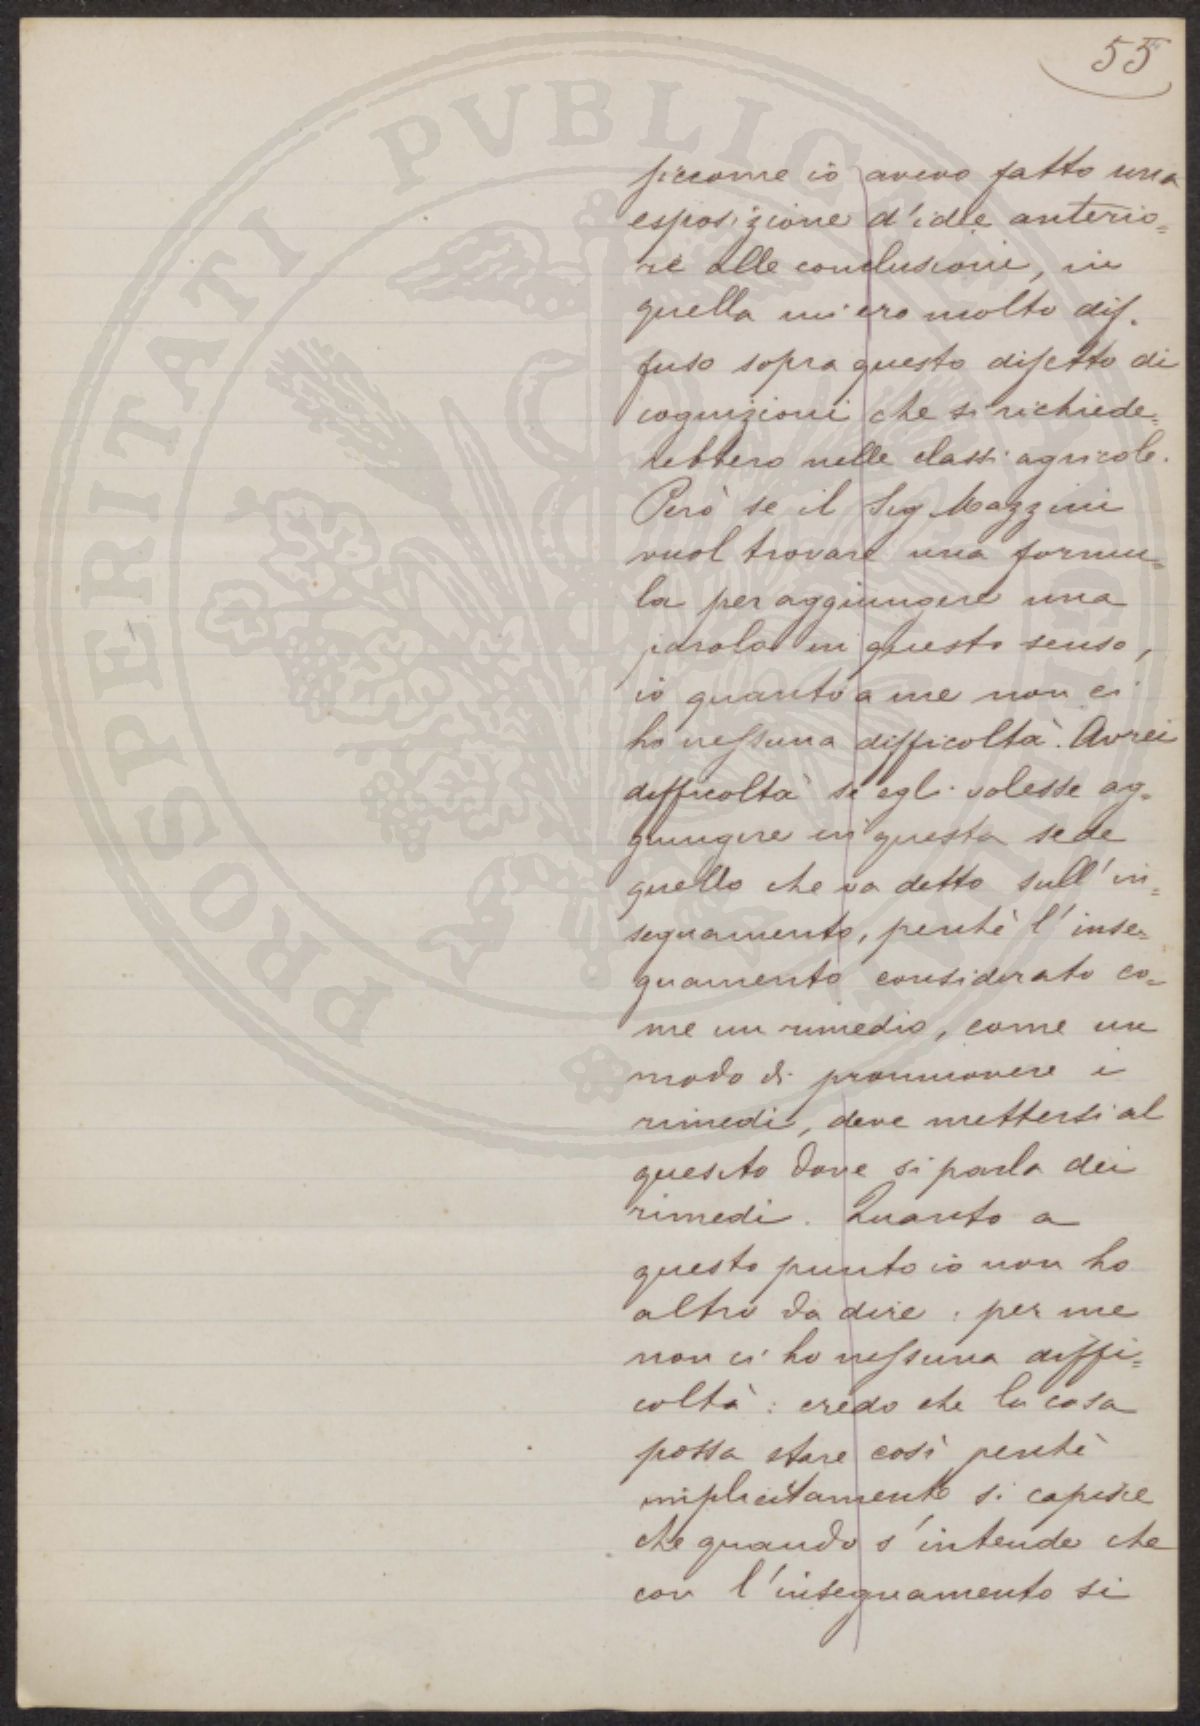 55
siccome io avevo fatto una
esposizione d'idee anterio=
re alle conclusioni, in
quella mi ero molto dif=
fuso sopra questo difetto di
cognizioni che si richiede=
rebbero nelle classi agricole.
Però se il Sig Mazzini
vuol trovare una formu=
la per aggiungere una
parola in questo senso,
io quanto a me non ci
ho nessuna difficoltà. Avrei
difficoltà se egli volesse ag=
giungere in questa sede
quello che va detto sull'in=
segnamento, perchè l'inse=
gnamento considerato co=
me un rimedio, come un
modo di promuovere i
rimedi, deve mettersi al
quesito dove si parla dei
rimedi. Quanto a
questo punto io non ho
altro da dire: per me
non ci ho nessuna diffi=
coltà: credo che la cosa
possa stare così perchè
implicitamente si capisce
che quando s'intende che
con l'insegnamento si
PROSPERITATI PVBLICAE